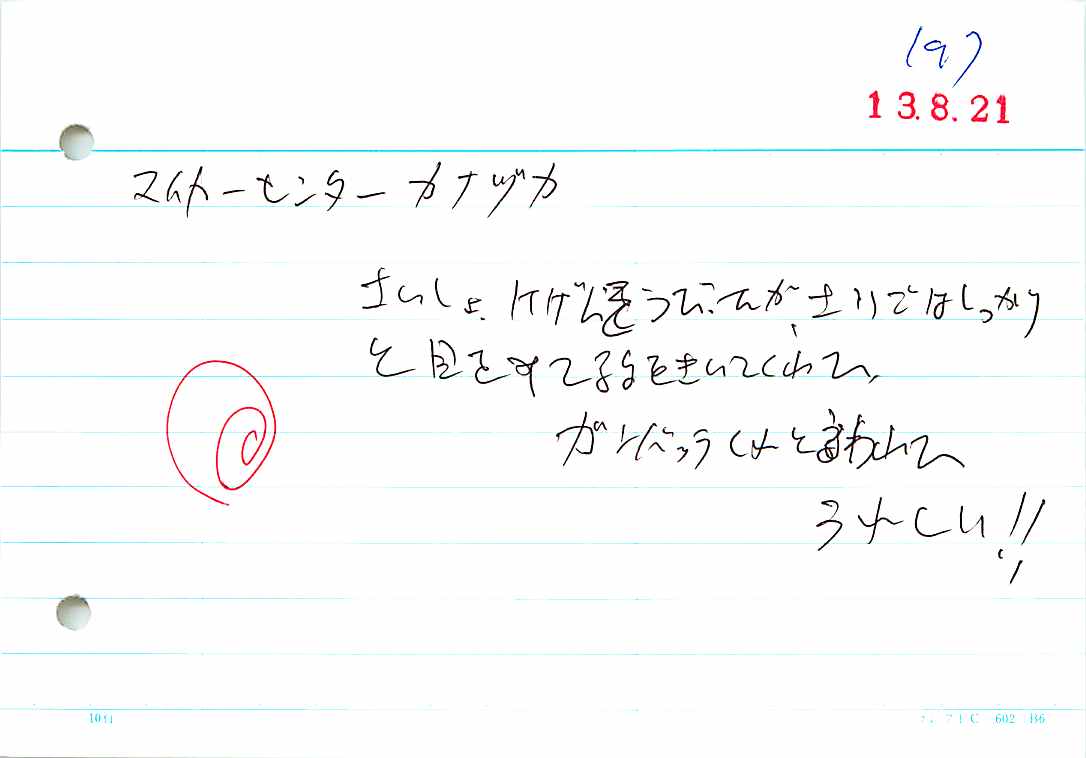 (9)
13.8.21
マイカーセンターカナヅカ
さいしょ、ケゲンそうだったが、さりではしっかり
と目をみて話をきいてくれて、
ガンバッテくれと言われて
うれしい!!
10行
C 602 B6